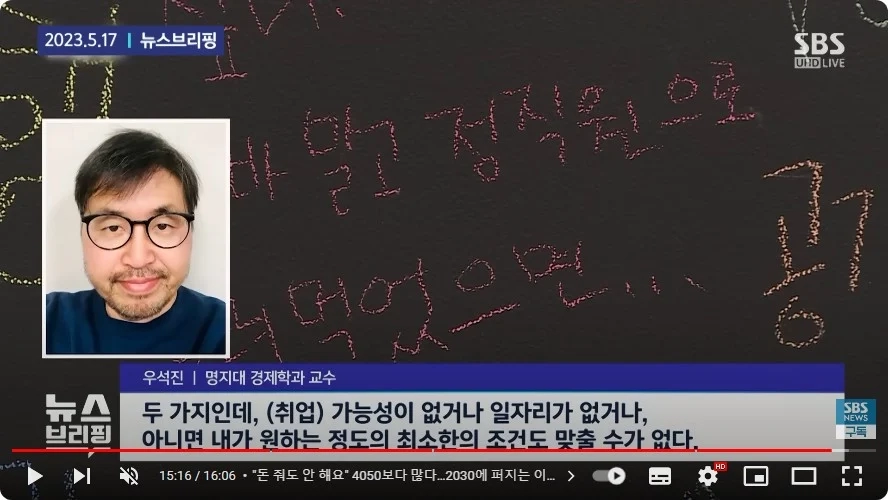 2023.5.17 | 뉴스브리핑
SBS
UHD LIVE
맑 정직원으로
먹었으면...
꿈
우석진 | 명지대 경제학과 교수
뉴스
브리핑
두 가지인데, (취업) 가능성이 없거나 일자리가 없거나,
아니면 내가 원하는 정도의 최소한의 조건도 맞출 수가 없다.
SBS
NEWS
구독
15:16 / 16:06 • "돈 줘도 안 해요" 4050보다 많다…2030에 퍼지는 이…
HD